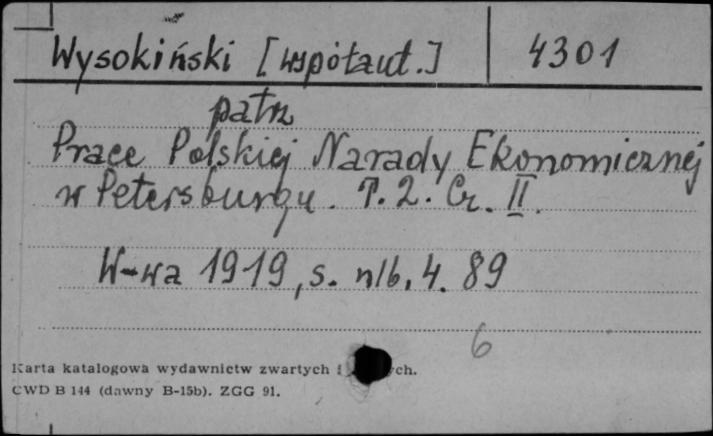 Wysokiński [współaut.] 4301
patrz
Prace Polskiej Narady Ekonomicznej
w Petersburgu. T. 2. Cz. II.
W-wa 1919, s. nlb. 4. 89
6
Karta katalogowa wydawnictw zwartych i
CWD B 144 (dawny B-15b). ZGG 91.